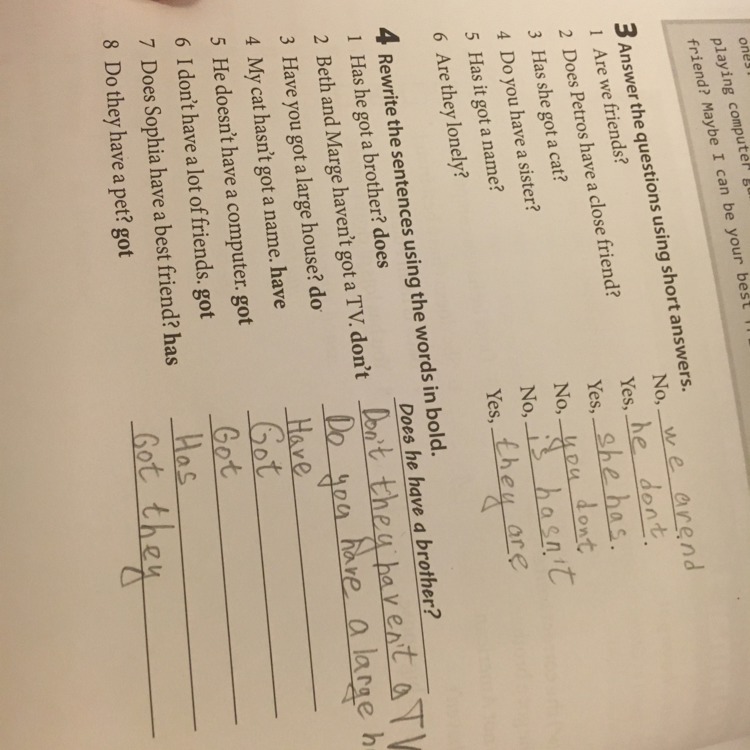 ones.
playing computer
friend? Maybe I can be your best
3 Answer the questions using short answers.
1 Are we friends? No, we arend
2 Does Petros have a close friend? Yes, he dont.
3 Has she got a cat? Yes, she has.
4 Do you have a sister? No, you dont
5 Has it got a name? No, is hasn't
6 Are they lonely? Yes, they are
4 Rewrite the sentences using the words in bold.
1 Has he got a brother? does Does he have a brother?
2 Beth and Marge haven't got a TV. don't Don't they haven't a TV
3 Have you got a large house? do Do you have a large h
4 My cat hasn't got a name. have Have
5 He doesn't have a computer. got Got
6 I don't have a lot of friends. got Got
7 Does Sophia have a best friend? has Has
8 Do they have a pet? got Got they